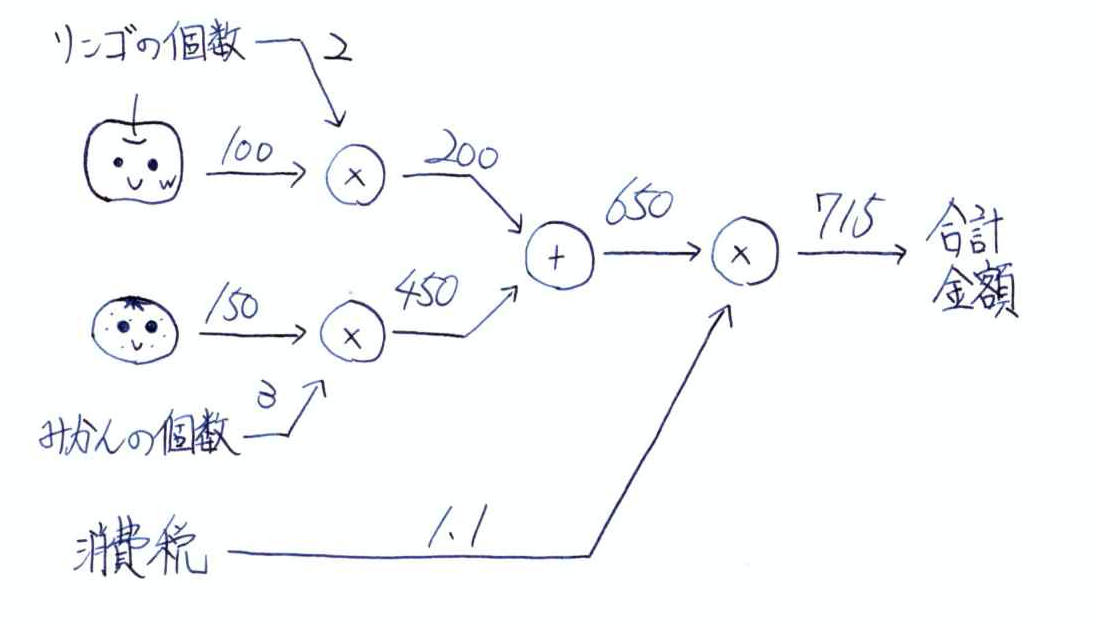 リンゴの個数 2
100
×
200
650
715
合計
金額
+
×
150
×
450
3
みかんの個数
消費税
1.1